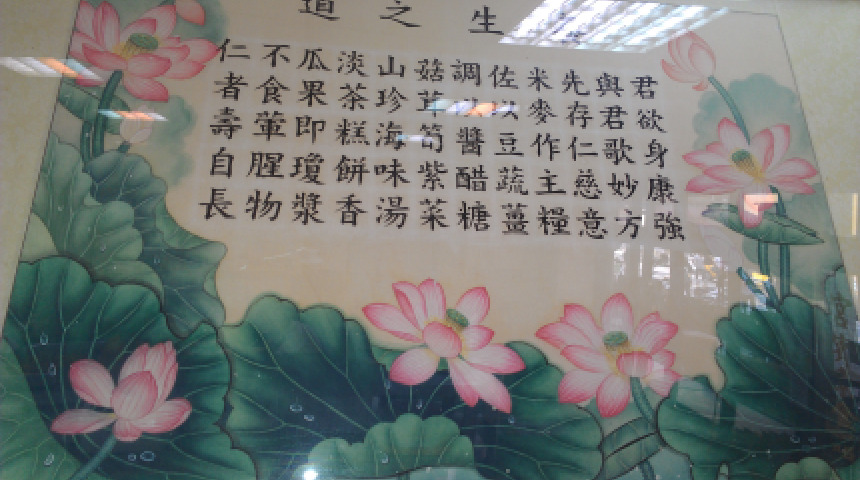 生之道
君欲身康強
與君歌妙方
先存仁慈意
米麥作主糧
佐以豆蔬薑
調醬醋糖
菇茸筍紫菜
山珍海味湯
淡茶糕餅香
瓜果即瓊漿
不食葷腥物
仁者壽自長